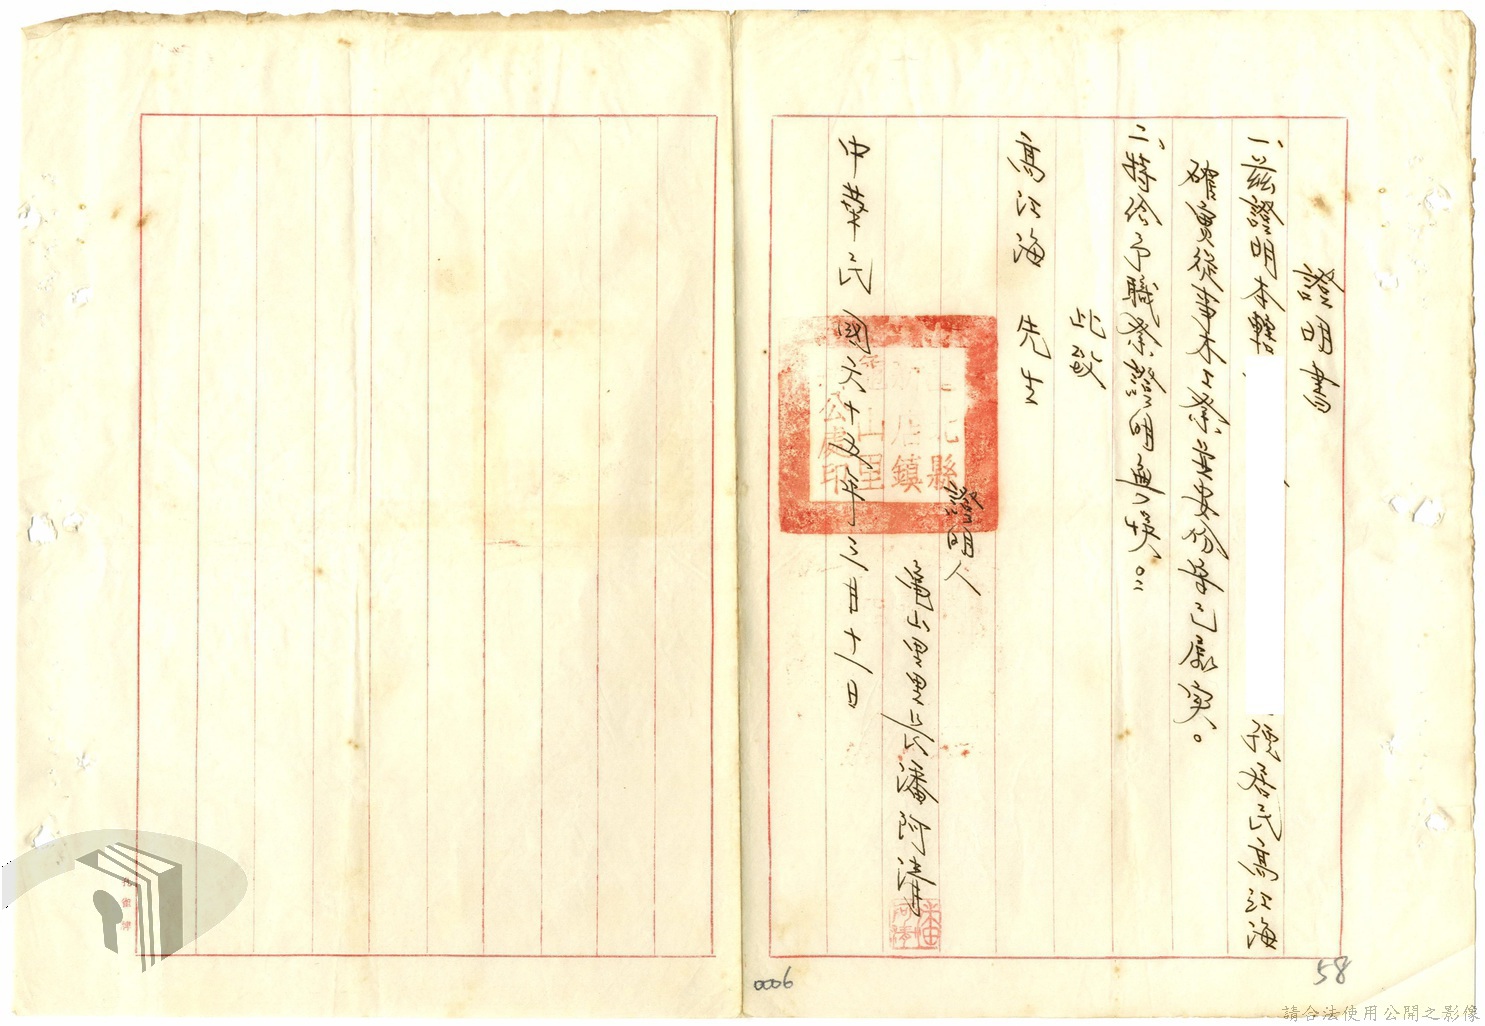 證明書
一、茲證明本轄
號居民高江海
確實從事木工業並安份守己屬实。
二、特給予職業證明無誤。
此致
高江海 先生
證明人
龜山里里長潘阿溝
中華民國六十五年三月十八日
台北縣
新店鎮
龜山里
公處印
0006
58
請合法使用公開之影像